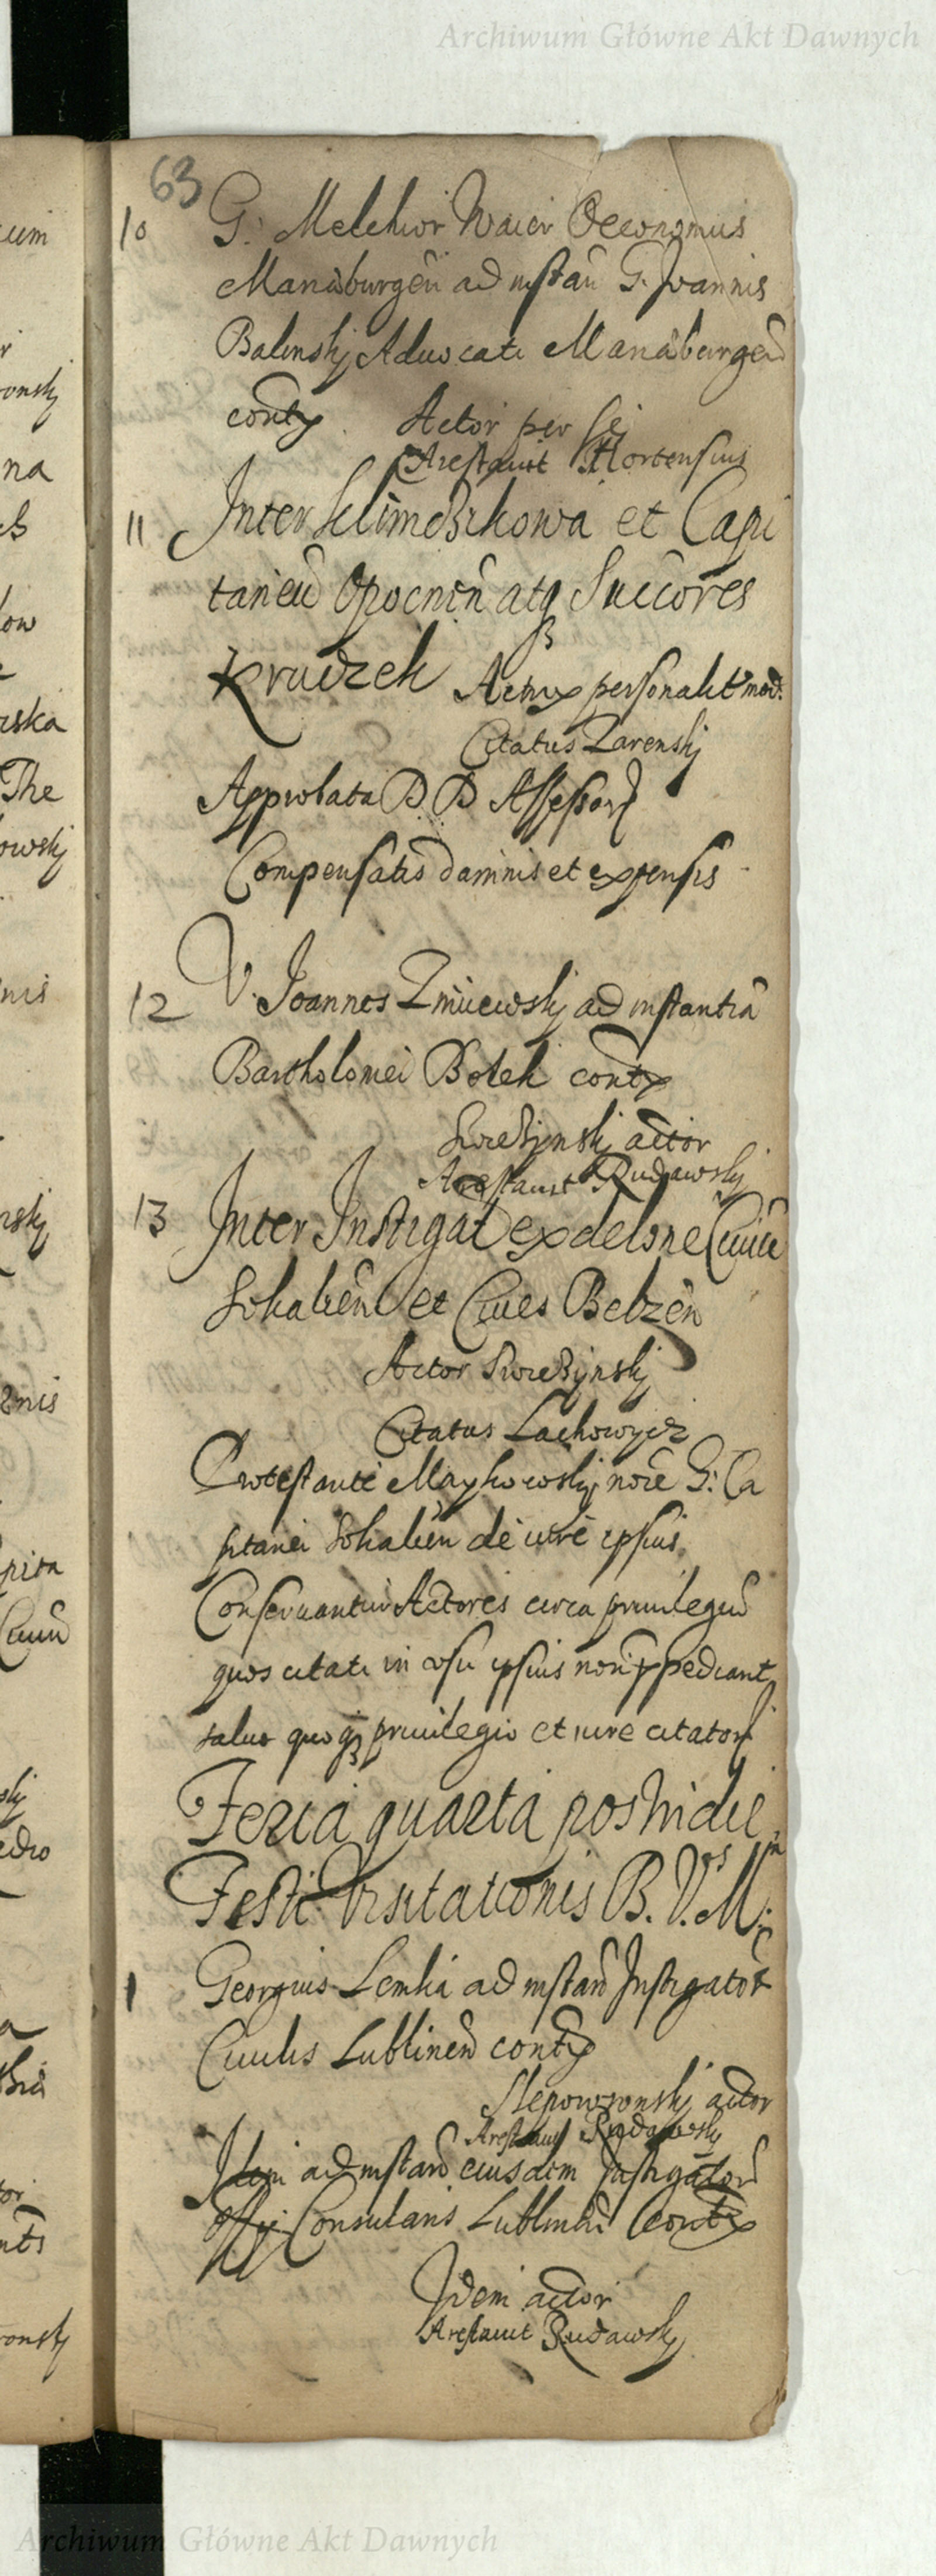 Archiwum Główne Akt Dawnych
63
10 G: Melchior Waier Oeconomus
Mariaburgen ad instan G. Joannis
Balinskj Aduocati Mariaburgen
contx Actor per se
Arestauit Hortensius
11 Inter Klimoszkowa et Capi
taneū Opocnen atq Succores
Kruszek Actrix personalit med.
Citatus Zarenskj
Approbata D D Assessor
Compensatis damnis et expensis
12 V. Joannes Zmiiewskj ad instantia
Bartholomei Bolek contx
Swiezynskj actor
Arestauit Rudawskj
13 Inter Instigat ex delone Ciuiu
Sokalien et Ciues Belzen
Actor Swiezynskj
Citatus Lachowycz
Protestante Maykowskj noie G: Ca
pitanei Sokalien de iure ipsius
Conseruantur Actores circa priuilegiu
quos citati in usu ipsius non impediant
saluo quoq priuilegio et iure citator
Feria quarta postridie
Festi Visitationis B. V. M:
1 Georgius Lemka ad instan Instigator
Ciuilis Lublinen contx
Slepowronskj actor
Arestauit Rudawskj
Idem ad instan eiusdem Instigator
Offij Consularis Lublinen Contx
Idem actor
Arestauit Rudawskj
Archiwum Główne Akt Dawnych